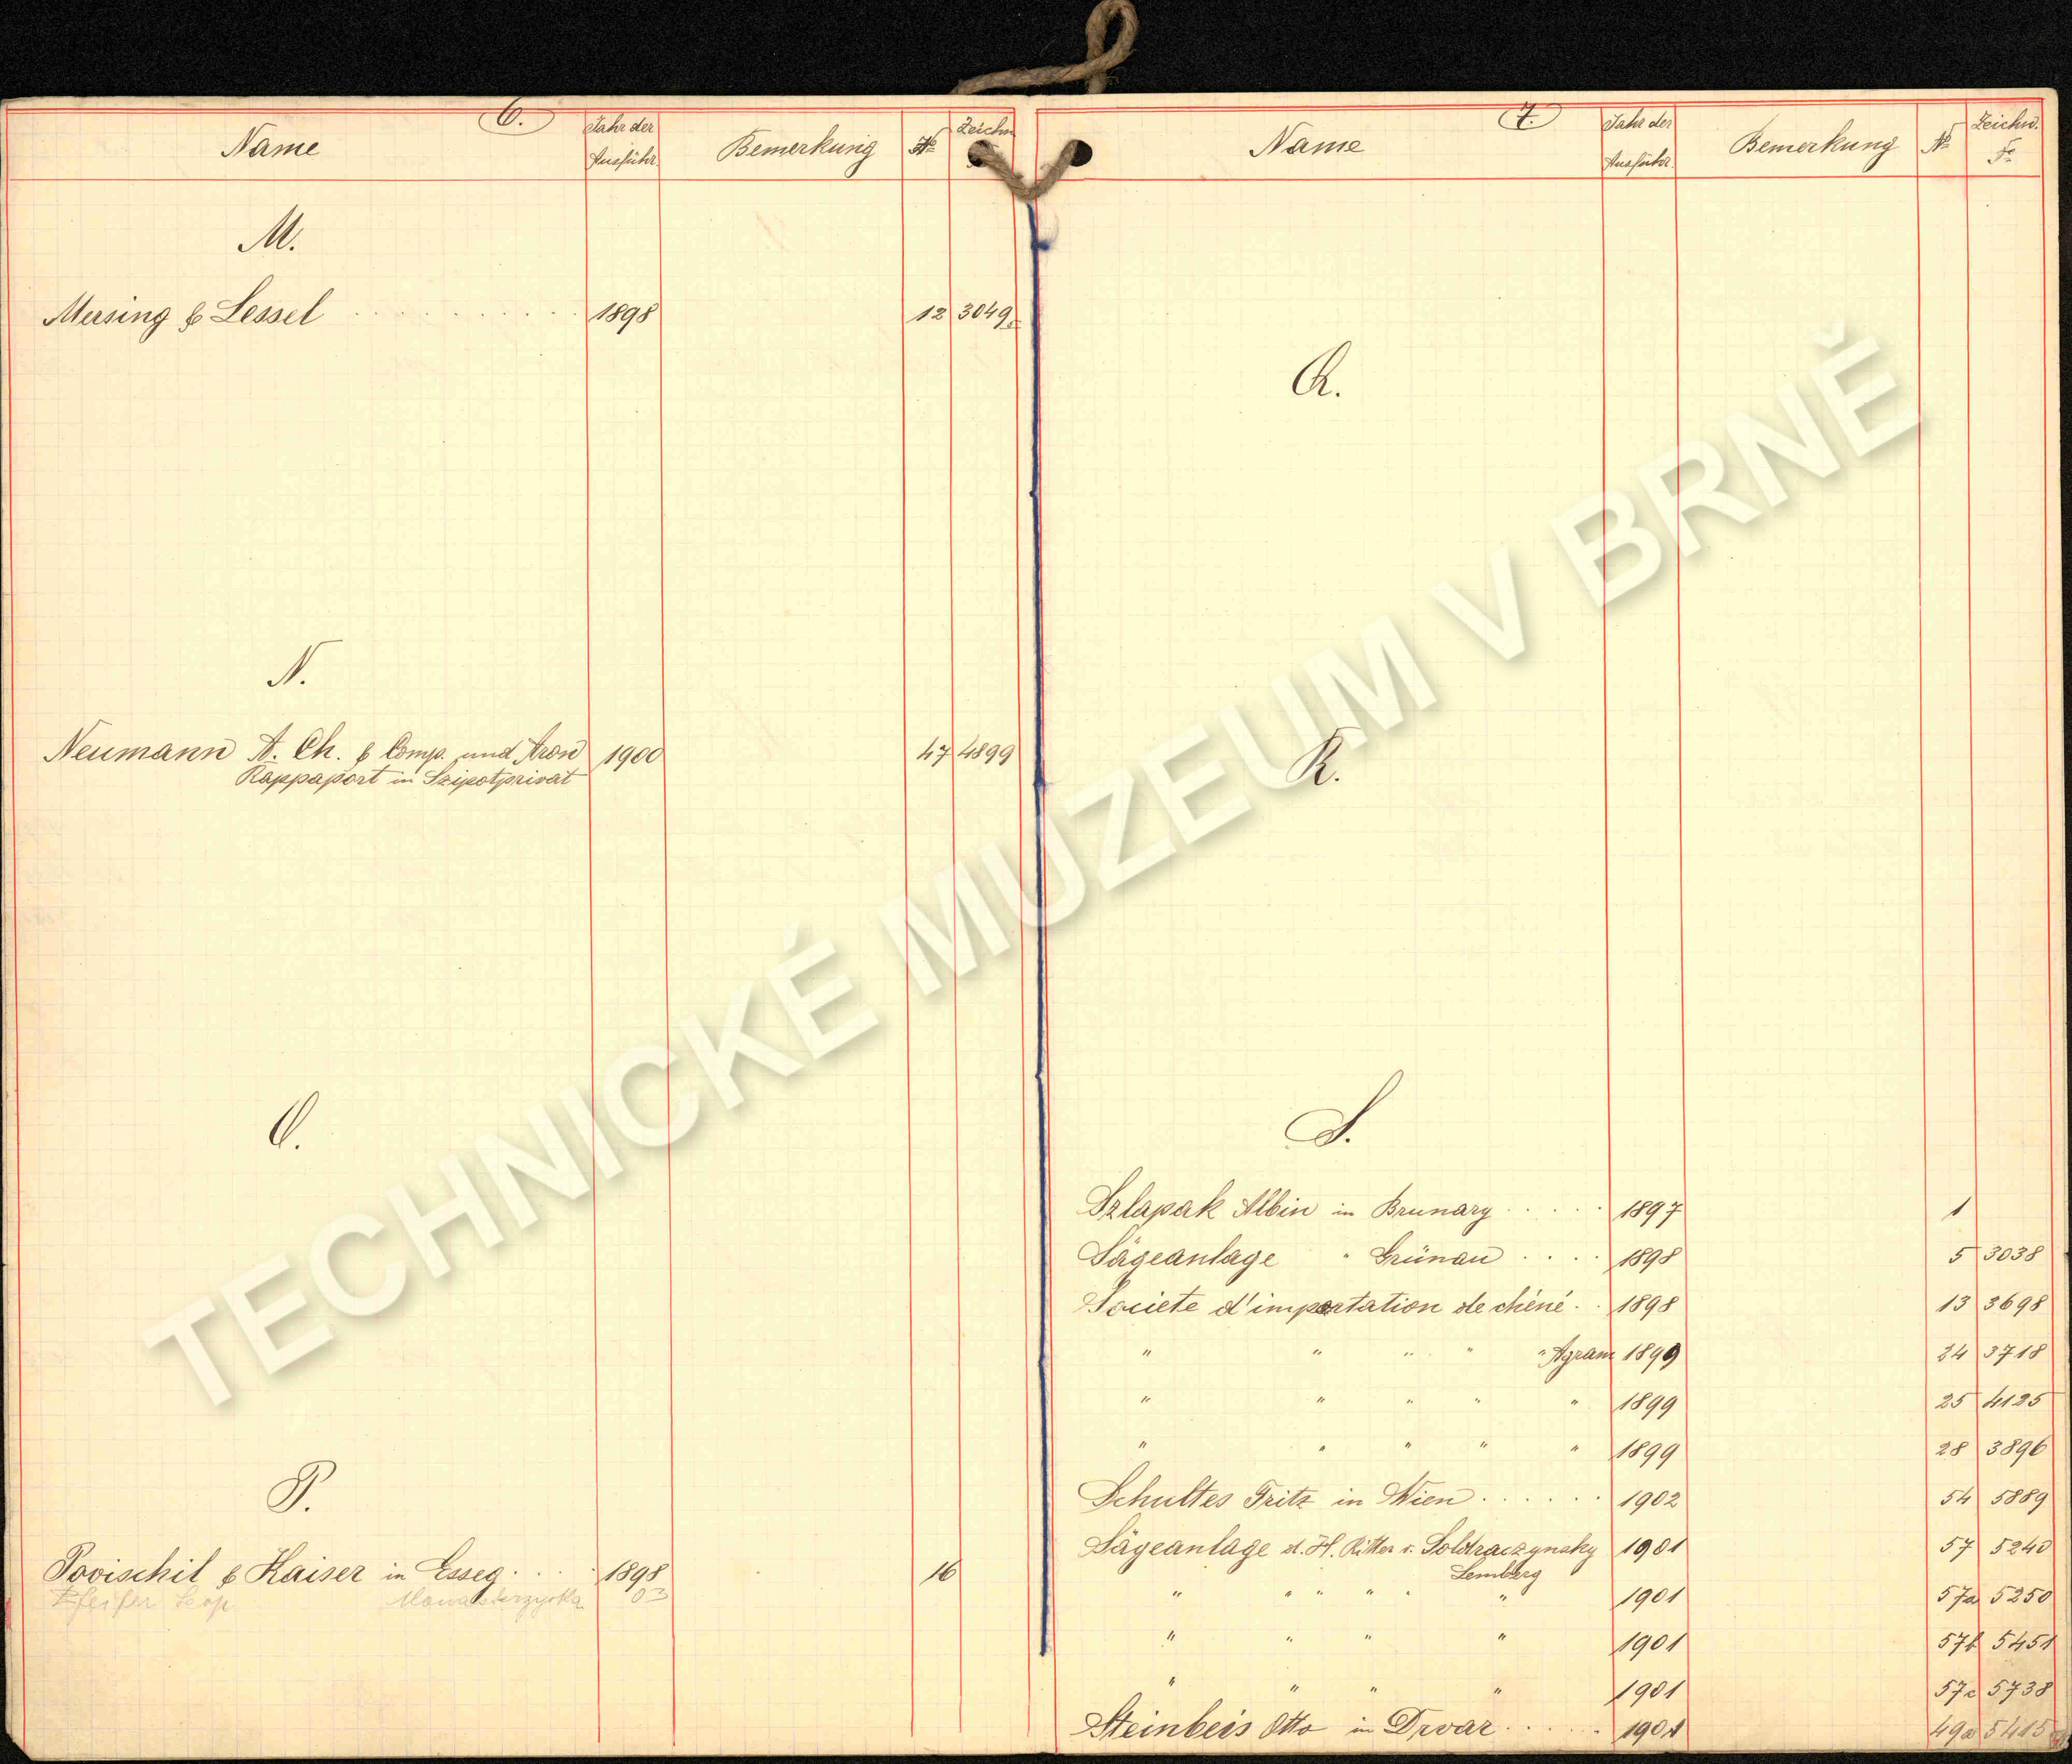 6.
Name Jahr der Ausführ. Bemerkung № Zeichn.
M.
Mersing & Lessel . . . . . . . . . . 1898 12 3049
N.
Neumann A. Ch. & Comp. und Aron 1900 47 4899
Rappaport in Szipotprivat
O.
P.
Povischil & Kaiser in Esseg . . . . 1898 16
Pfeifer Leop. Monasterzyska 03
7.
Name Jahr der Ausführ. Bemerkung № Zeichn. №
Q.
R.
S.
Szlapak Albin in Brunary . . . . . 1897 1
Sägeanlage " Grünau . . . . 1898 5 3038
Societe d'importation de chéné . . 1898 13 3698
" " " " " Agram 1899 24 3718
" " " " " 1899 25 4125
" " " " " 1899 28 3896
Schultes Fritz in Wien . . . . . . 1902 54 5889
Sägeanlage d. H. Ritter v. Soldraczynsky 1901 57 5240
Lemberg
" " " " " " 1901 57a 5250
" " " " 1901 57b 5451
" " " " 1901 57c 5738
Steinbeis Otto in Drvar . . . . . . 1901 49a 5415
TECHNICKÉ MUZEUM V BRNĚ